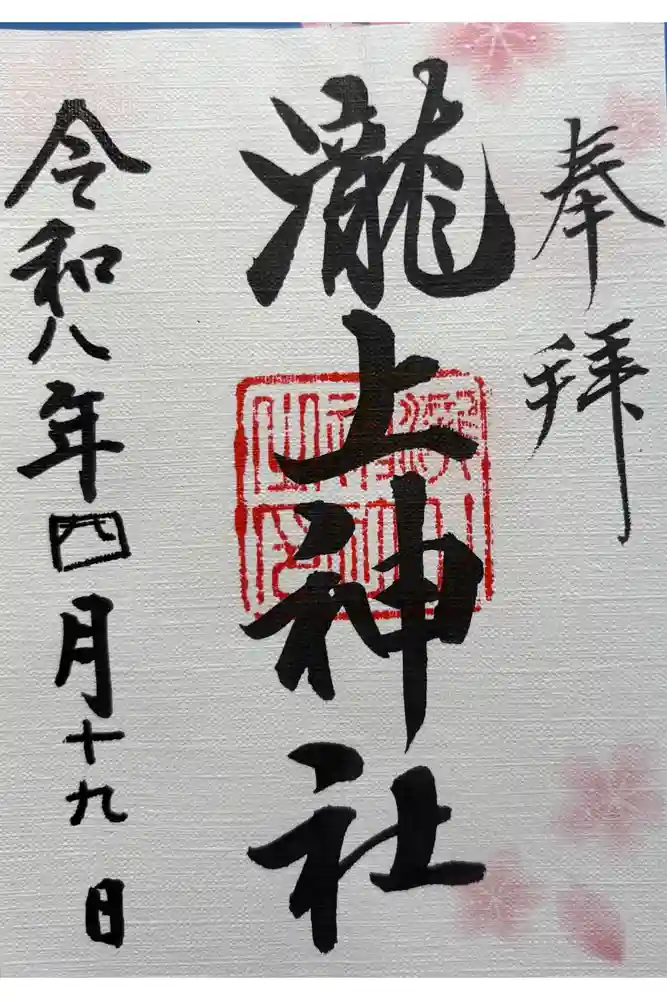 奉拝
瀧上神社
令和八年四月十九日